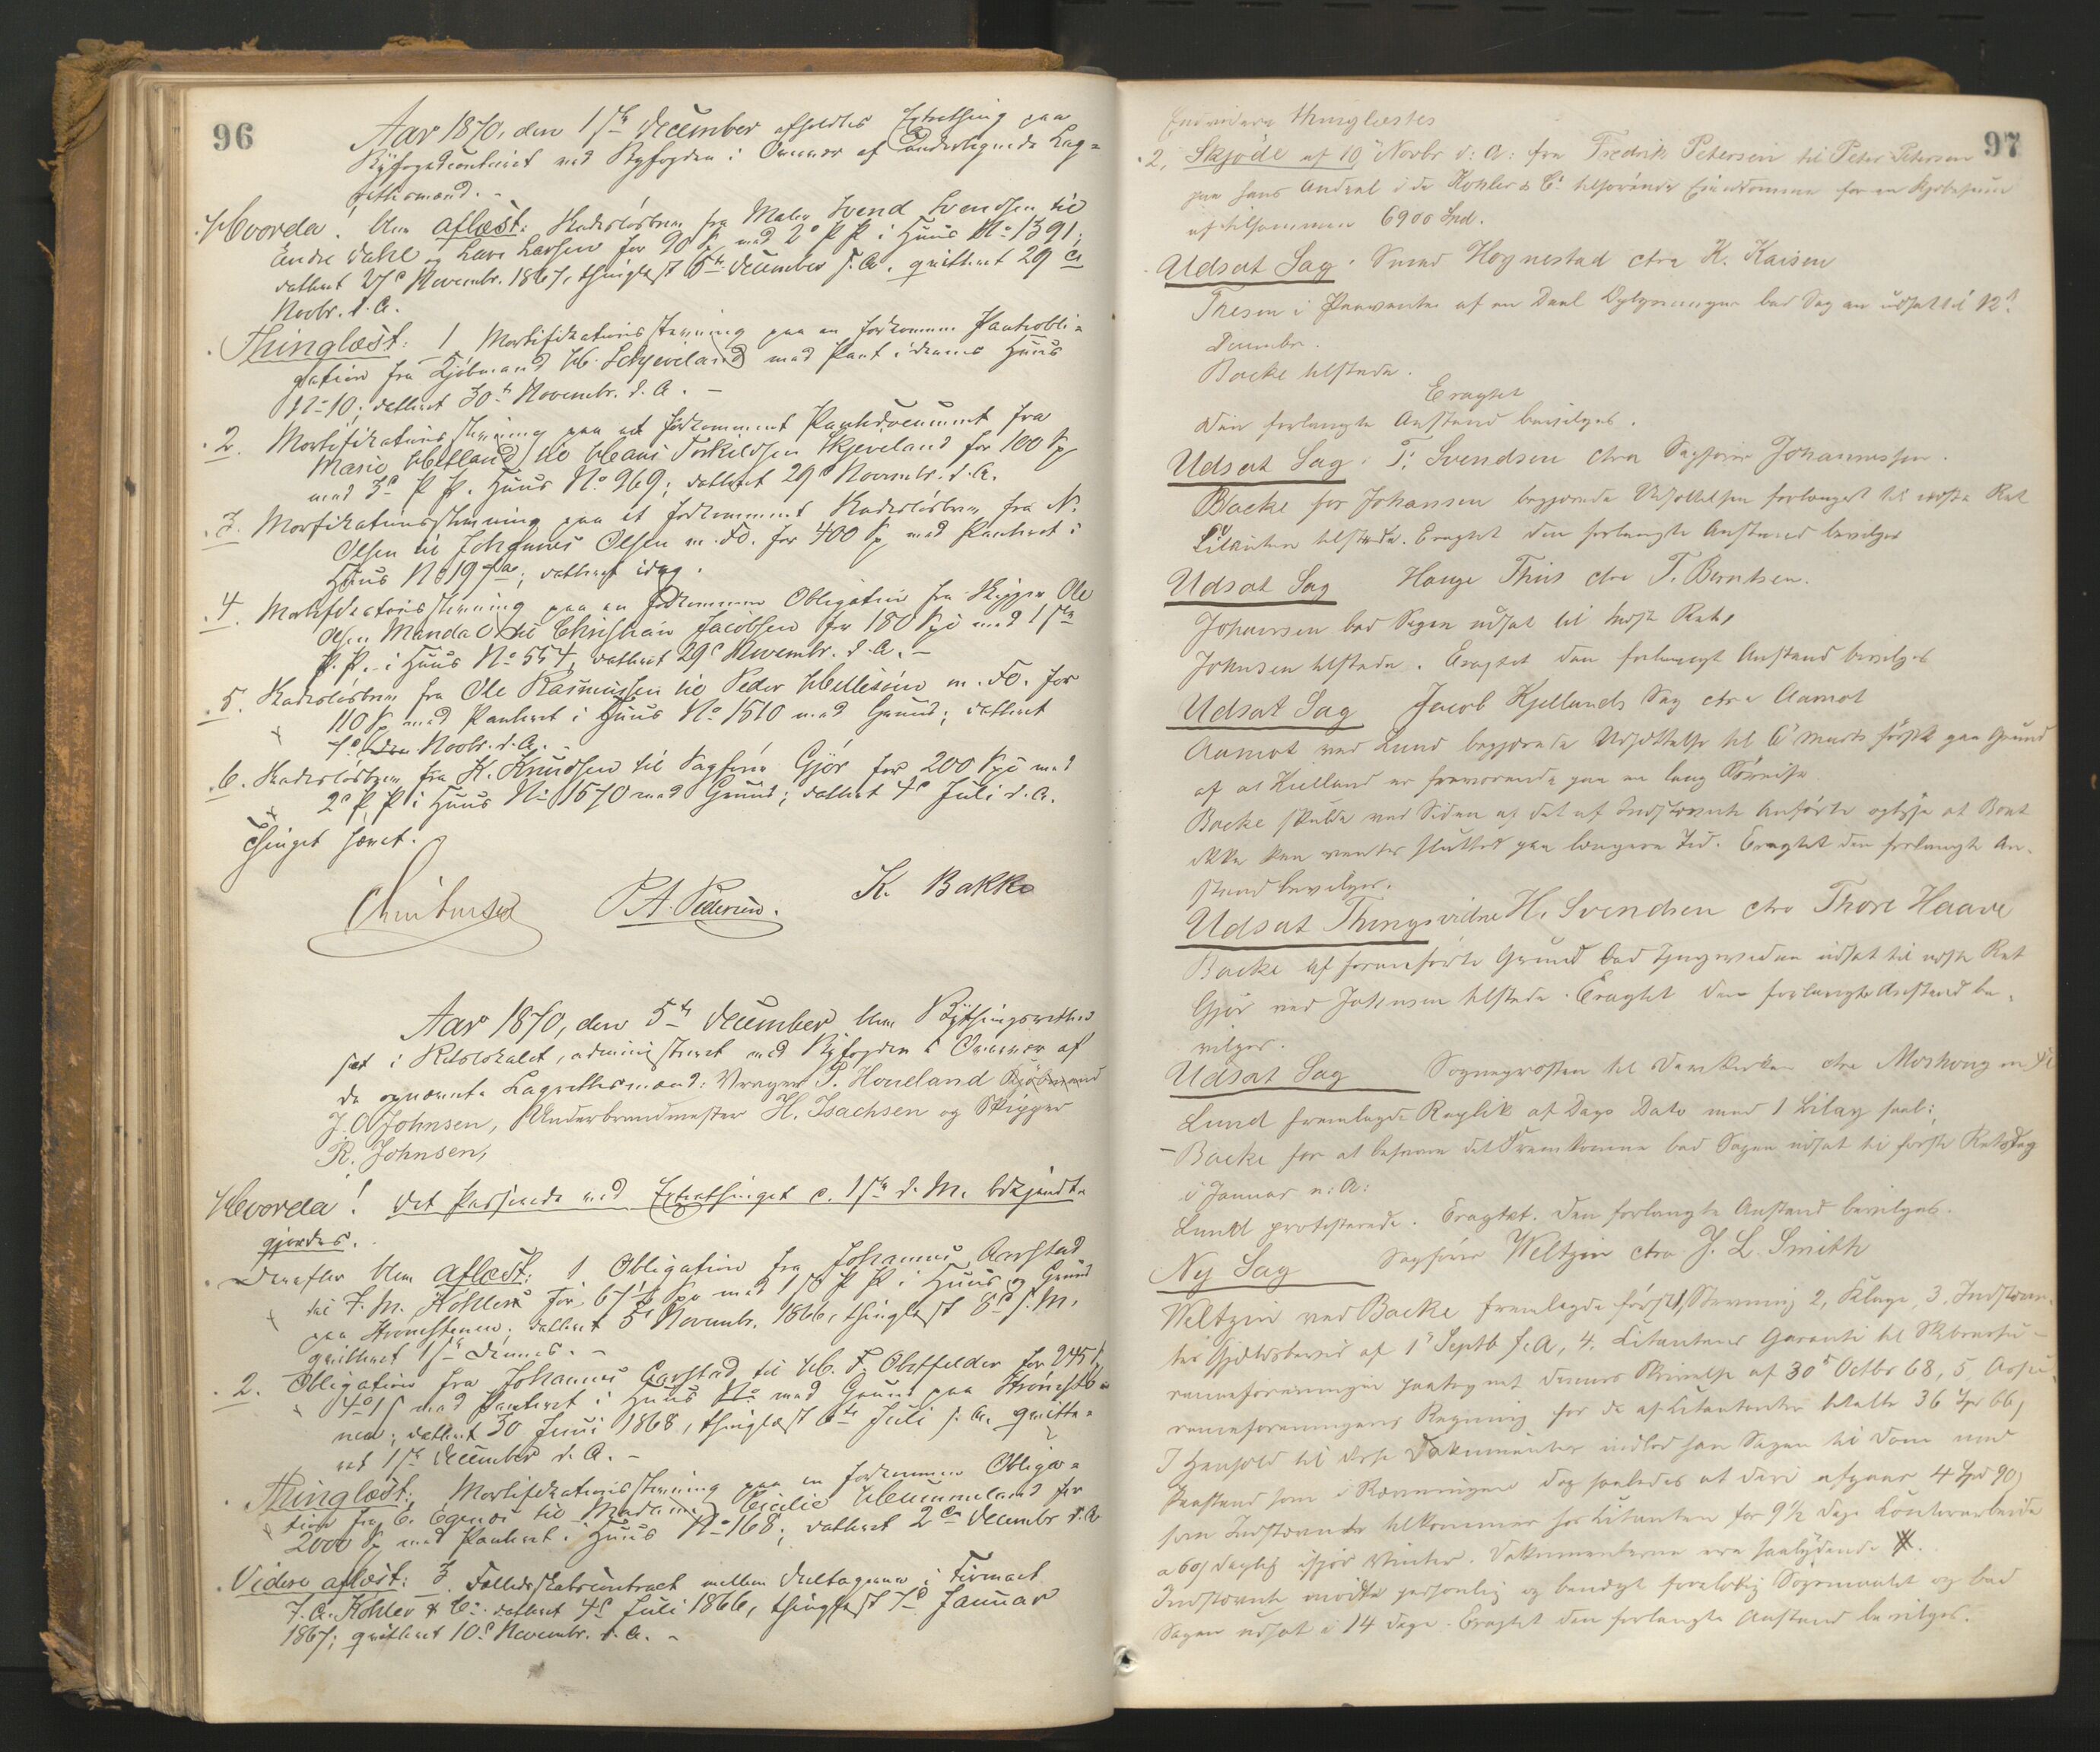 96
Aar 1870, den 1ste December afholdtes Extrathing paa
Byfogedcontoiret ved Byfogden i Overvær af undertegnede Lag=
rettesmænd. -
Hvorda! blev aflæst: Skadesløsbrev fra Maler Svend Svendsen til
Endre Dahl og Lars Larsen for 90 Sp med 2n P. Pt. i Huus No 1391;
datteret 27de Novembr. 1867, thinglæst 5te December s. A. qvitteret 29de
Novbr. d. A.
Thinglæst: 1 Mortifikationsstevning paa en forkommen Pantobli=
gation fra Kjøbmand W. Schjeveland med Pant i dennes Huus
No 10; datteret 30te Novembr. d. A. -
2. Mortifikationsstevning paa et forkommet Pantedocument fra
Marie Hetland til Hans Torkildsen Skjeveland for 100 Sp
med 3de P. Pt. Huus No 969; datteret 29de Novembr. d. A.
3. Mortifikationsstevning paa et forkommet Skadesløsbrev fra N.
Olsen til Johannes Olsen m. Fl. for 400 Sp med Panteret i
Huus No 197; datteret idag.
4. Mortifikationsstevning paa en forkommen Obligation fra Skipper Ole
Olsen Mandal til Christian Jacobsen for 180 Spd med 1ste
P. Pt. i Huus No 554, datteret 29de Novembr. d. A. -
5. Skadesløsbrev fra Ole Rasmussen til Peder Hellesøe m. Fl. for
110 Sp med Panteret i Huus No 1510 med Grund; datteret
7de Novbr. d. A.
6. Skadesløsbrev fra K. Knudsen til Sagfører Gjør for 200 Spd med
2de P. Pt. i Huus No 1570 med Grund; datteret 4de Juli d. A.
Thinget hævet.
P. A. Pedersen. K. Bakke
Aar 1870, den 5te December blev Bythingsretten
sat i Retslokalet, administreret ved Byfogden i Overvær af
de opnævnte Lagrettesmænd: Vrager P. Houeland Kjøbmand
J. A Johnsen, Underbrandmester H. Isachsen og Skipper
R. Johnsen,
Hvorda! det Passerede ved Extrathinget d. 1ste d. M. bekjendt=
gjordes.
Derefter blev aflæst: 1 Obligation fra Johannes Aarstad
til F. M. Kohler for 67½ Spd med 1ste P. Pt. i Huus og Grund
paa Strømsteenen; datteret 5te Novembr. 1866, thinglæst 8de s. M.
qvitteret 1ste dennes. -
2. Obligation fra Johannes Aarstad til W. F. Obstfelder for 245
med Panteret i Huus No med Grund paa Strømstee=
nen; datteret 30 Juni 1868, thinglæst 6te Juli s. A. qvitte=
ret 1ste December d. A. -
Thinglæst: Mortifikationsstevning paa en forkommen Obliga=
tion fra C. Egenæs til Madame Cecilie Hummeland for
2000 Sp med Panteret i Huus No 168; datteret 2den Decembr d. A
Videre aflæst: 3. Fællesskabscontract mellem Deeltagerne i Firmaet
F. A. Kohler & Co. datteret 4de Juli 1866, thinglæst 7de Januar
1867; qvitteret 10de Novembr. d. A. -
97
Endvidere thinglæstes
2, Skjøde af 10 Novbr d: A: fra Fredrik Petersen til Peter Petersen
paa hans Andeel i de Kohler & Co tilhørende Eiendomme for en Kjøbesum
af tilsammen 6900 Spd.
Udsat Sag: Svend Hognestad ctra K. Kaisen
Thesen i Paavente af en Deel Oplysninger bad Sagen udsat til 12te
December.
Backe tilstede.
Eragtet
Den forlangte Anstand bevilges.
Udsat Sag: T. Svendsen ctra Sagfører Johannessen.
Backe for Johansen begjærede Udsættelsen forlænget til næste Ret
Citanten tilstede. Eragtet den forlangte Anstand bevilges
Udsat Sag Hauge Thiis ctra T. Berntsen.
Johansen bad Sagen udsat til næste Ret,
Johnsen tilstede. Eragtet den forlangte Anstand bevilges
Udsat Sag Jacob Kjellands Sag ctra Aamot
Aamot ved Lund begjærede Udsættelse til 6 Marts først paa Grund
af at Kielland er fraværende paa en lang Søreise.
Backe skulde ved Siden af det af Indstevnte Anførte oplyse at Boet
ikke kan ventes sluttet paa længere Tid. Eragtet den forlangte An=
stand bevilges.
Udsat Thingsvidne H. Svendsen ctra Thore Haave
Backe af formeldte Grund bad Thingsvidnet udsat til næste Ret
Gjør ved Johnsen tilstede. Eragtet den forlangte Anstand be=
vilges.
Udsat Sag Sogneprosten til Domkirken ctra Moskong m fl
Lund fremlagde Replik af Dags Dato med 1 Bilag saal:
- Backe for at besvare det Fremkomne bad Sagen udsat til første Retsdag
i Januar n: A:
Lund protesterede. Eragtet. Den forlangte Anstand bevilges.
Ny Sag Sagfører Weltzin ctra J. L. Smith
Weltzin ved Backe fremlagde først 1, Stevning 2, Klage, 3. Indstevn=
tes Gjeldsbevis af 1ste Septb f. A, 4. Citantens Garanti til Skibsassu=
ranceforeningen paategnet dennes Skrivelse af 30te Octbr 68, 5 Assu=
ranceforeningens Regning for de af Citanten betalte 36 Spd 66
I Henhold til disse Dokumenter indlod han Sagen til Dom med
Paastand som i Stevningen dog saaledes at deri afgaar 4 Spd 90
som Indstevnte tilkommer hos Citanten for 9½ Dags Contorarbeide
a 60 daglig ifjor Vinter. Dokumenterne ere saalydende
Indstevnte mødte personlig og benægt foreløbig Søgsmaalet og bad
Sagen udsat i 14 Dage. Eragtet den forlangte Anstand bevilges.